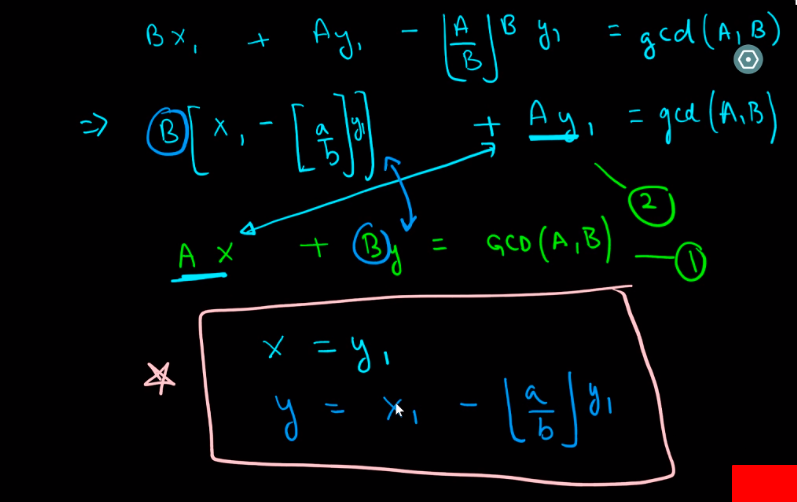 Bx₁ + Ay₁ - ⌊A/B⌋ B y₁ = gcd(A, B)
⇒ B[x₁ - [a/b]y₁] + Ay₁ = gcd(A, B)
2
Ax + By = GCD(A, B)
1
x = y₁
y = x₁ - ⌊a/b⌋ y₁